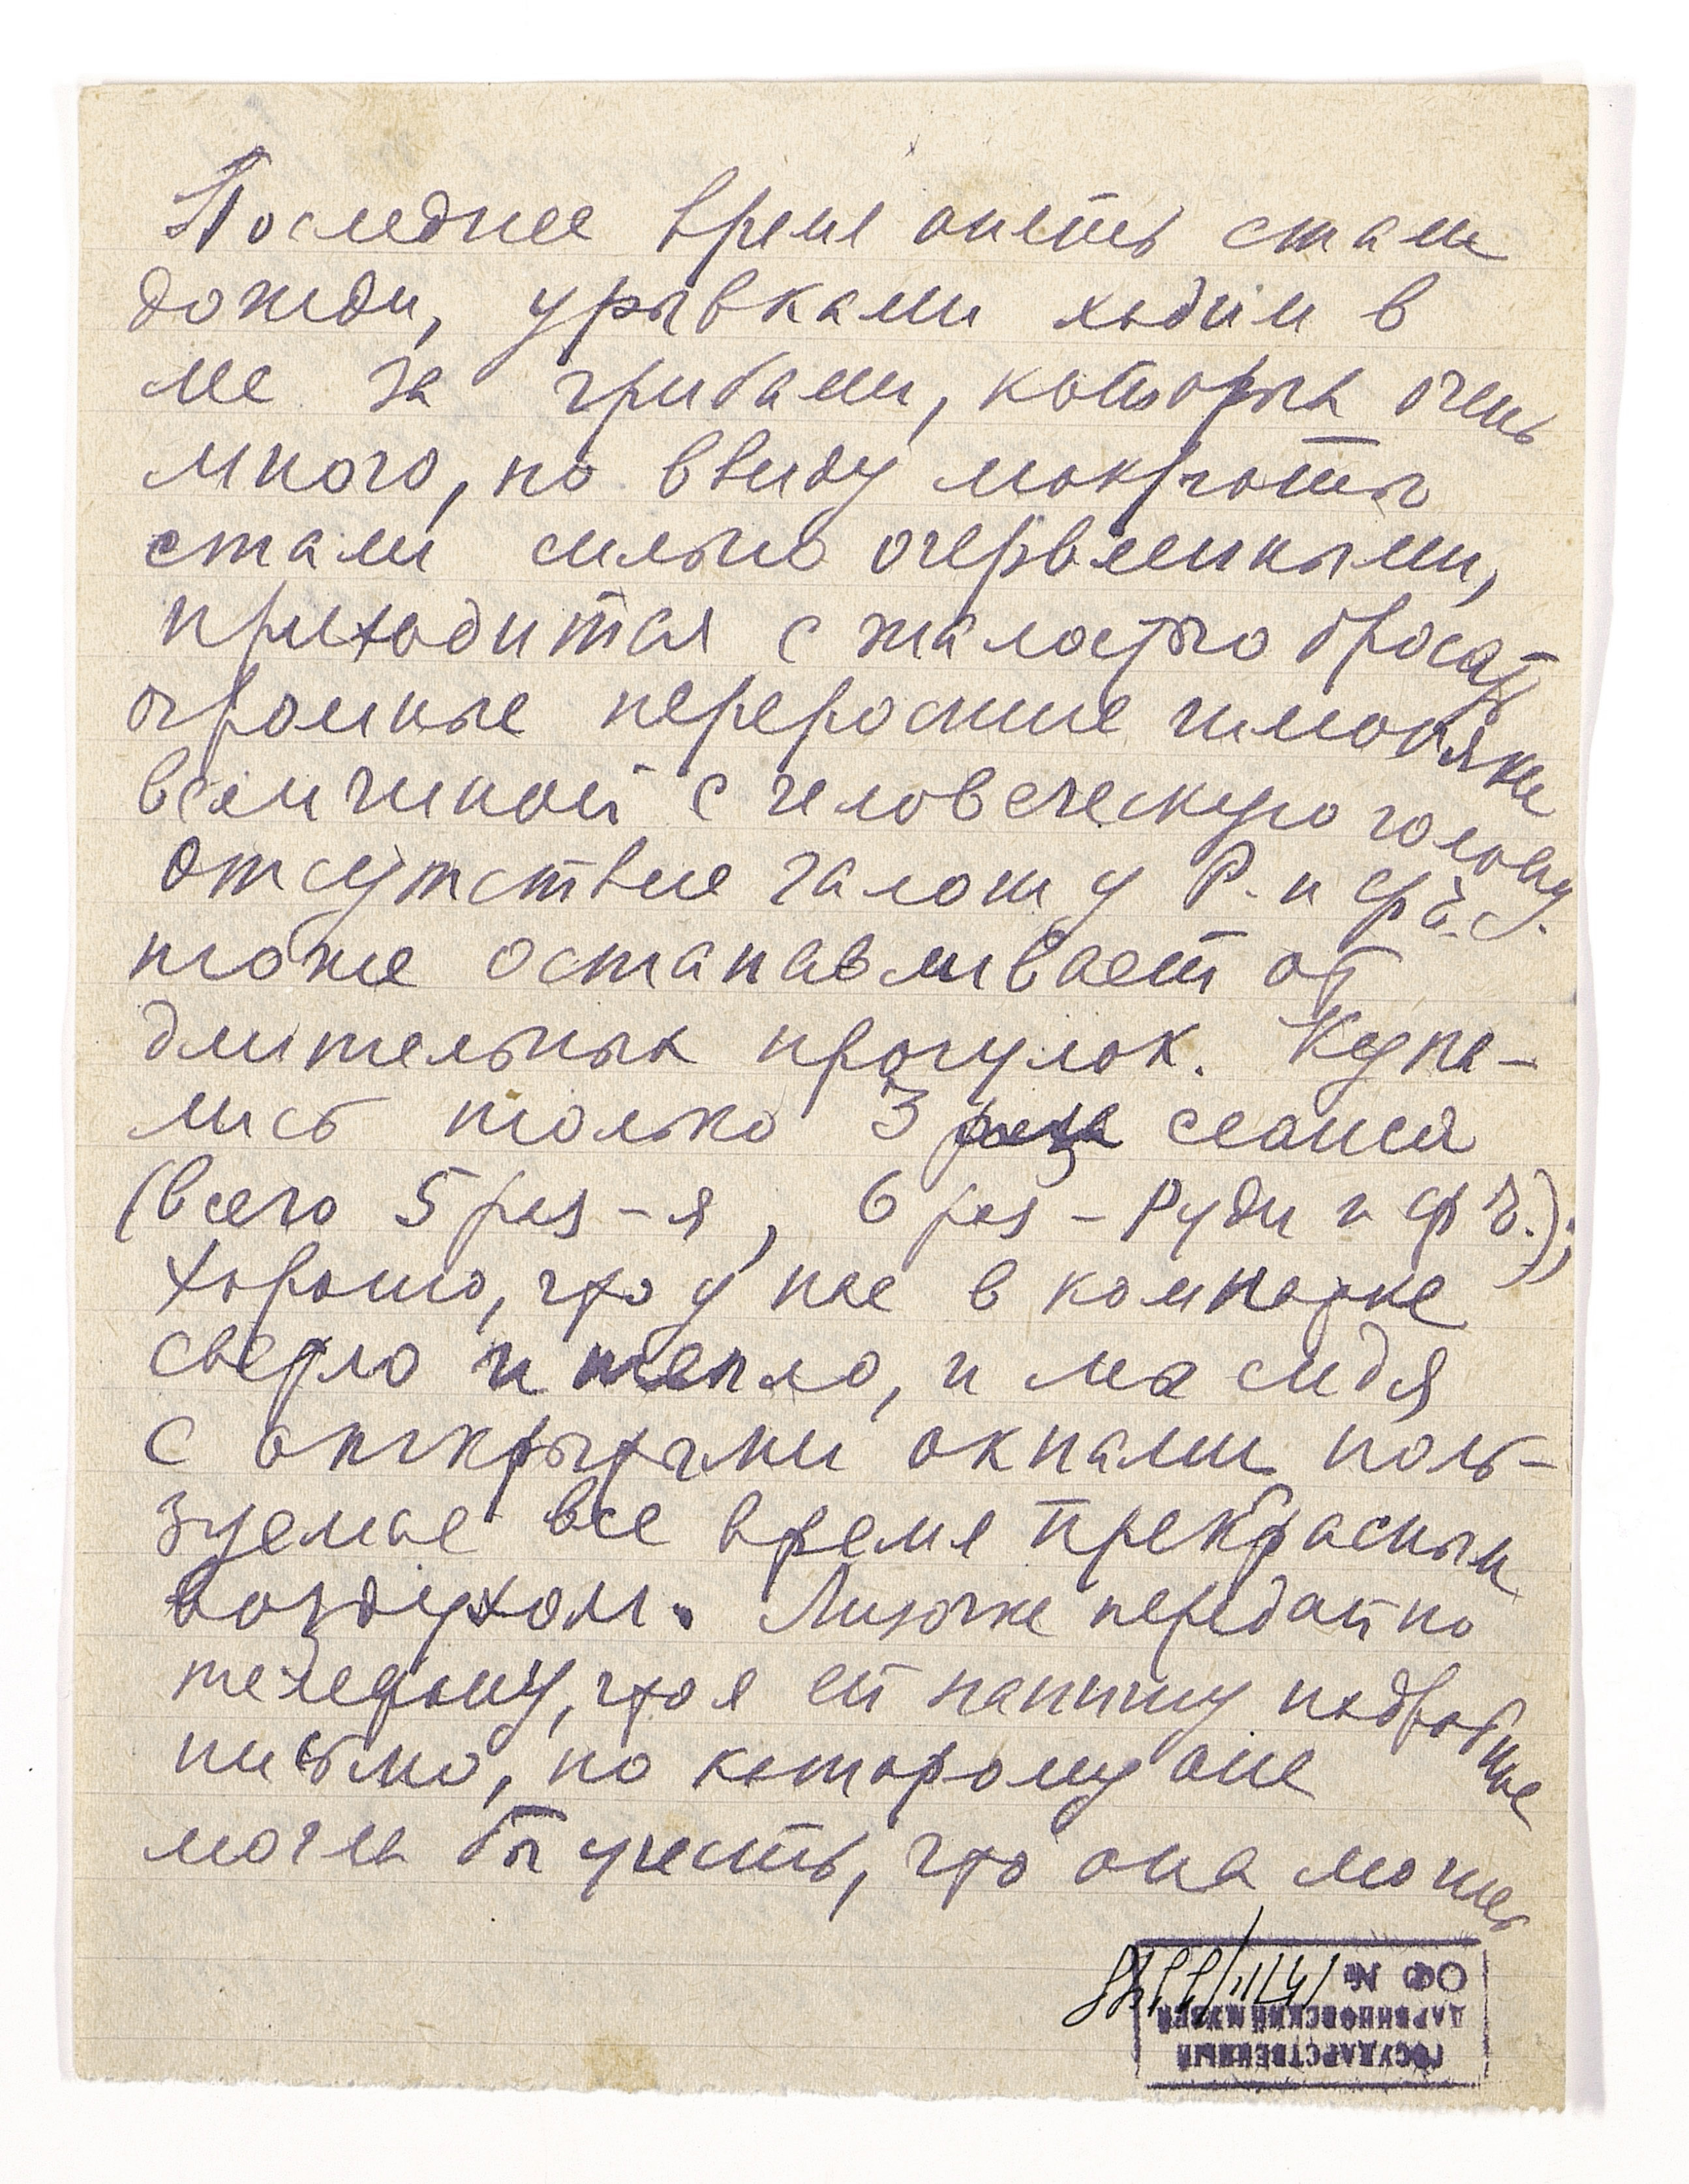 Последнее время опять стали
дожди, урывками ходим в
ле за грибами, которых очень
много, но ввиду мокроты
стали сильно очервленными,
приходится с жалостью бросать
огромные переросшие шляпки
величиной с человеческую голову.
Отсутствие галош у Р. и ФЪ.
тоже останавливает от
длительных прогулок. Купа-
лись только 3 сеанса
(всего 5 раз – я, 6 раз – Руди и ФЪ.);
хорошо, что у нас в комнатке
светло и тепло, и мы сидя
с открытыми окнами поль-
зуемся все время прекрасным
воздухом. Лизочке передай по
телефону, что я ей напишу подробное
письмо, по которому она
могла бы учесть, что она может
ОФ №
ДАРВИНОВСКИЙ МУЗЕЙ
ГОСУДАРСТВЕННЫЙ